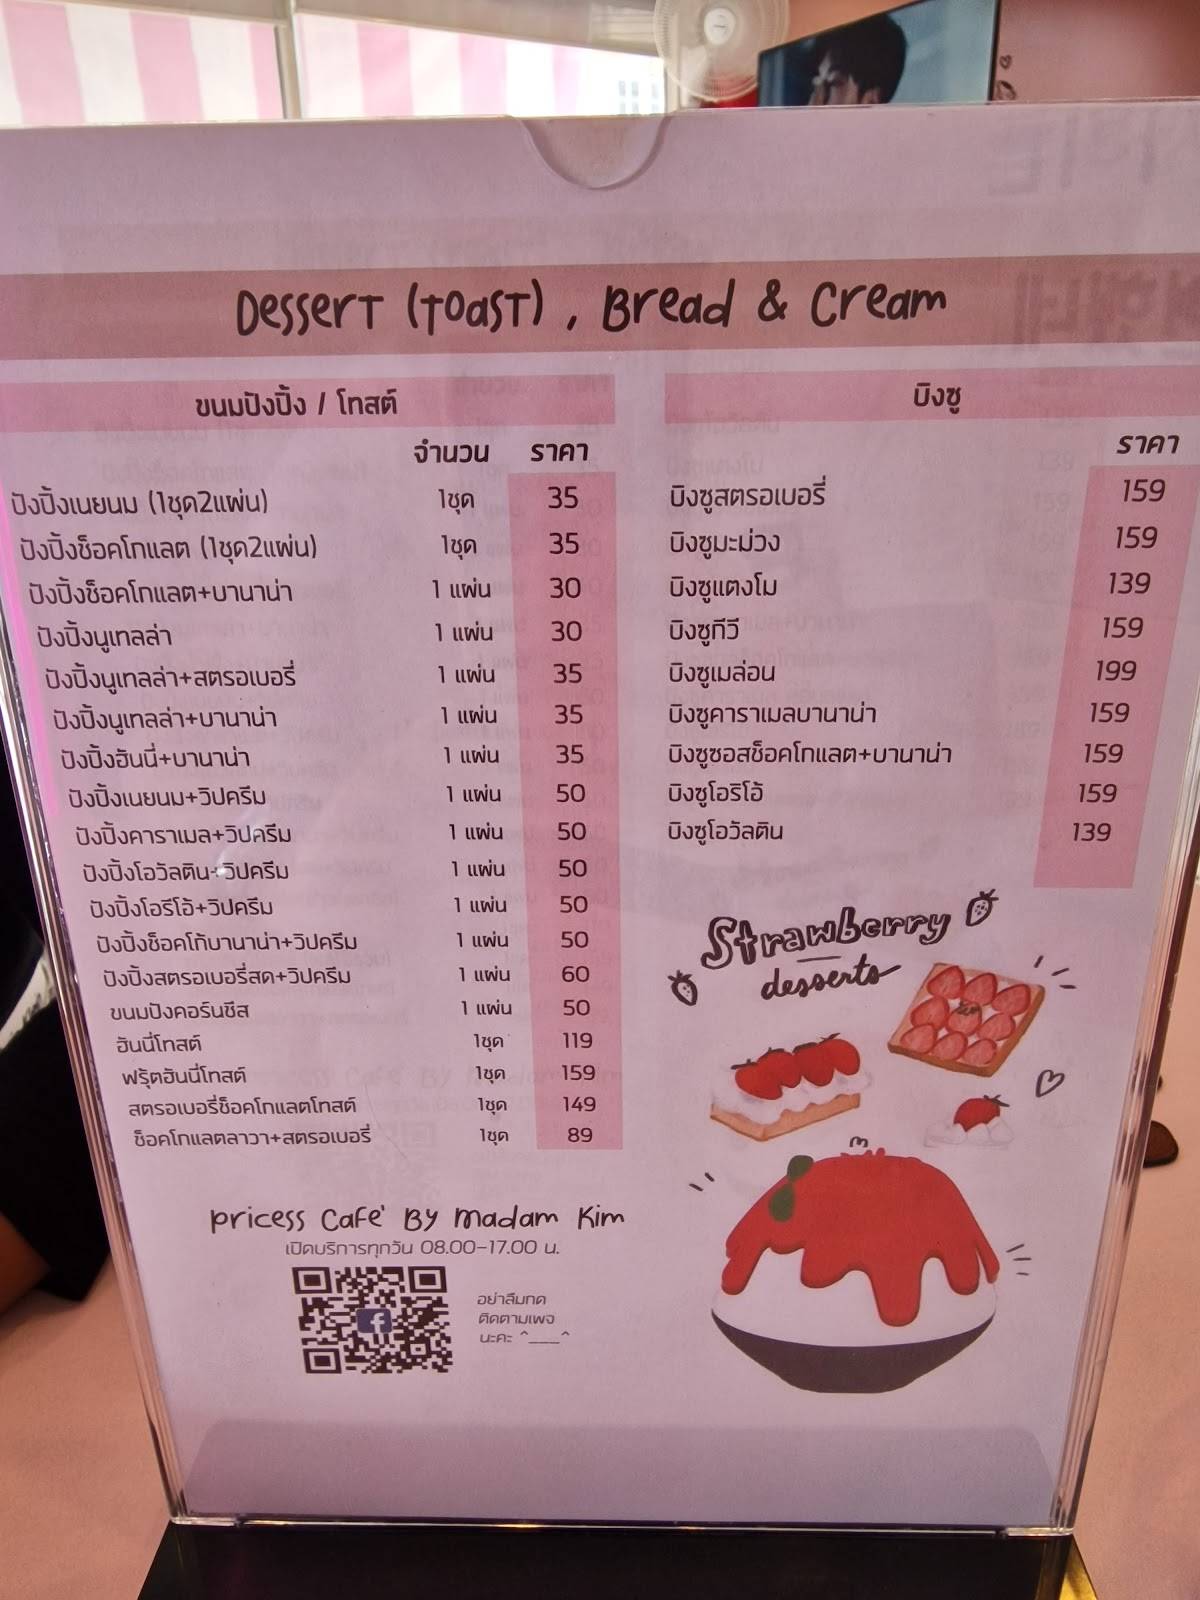 Dessert (Toast) , Bread & Cream
ขนมปังปิ้ง / โทสต์
จำนวน ราคา
ปังปิ้งเนยนม (1ชุด2แผ่น) 1ชุด 35
ปังปิ้งช็อคโกแลต (1ชุด2แผ่น) 1ชุด 35
ปังปิ้งช็อคโกแลต+บานาน่า 1 แผ่น 30
ปังปิ้งนูเทลล่า 1 แผ่น 30
ปังปิ้งนูเทลล่า+สตรอเบอรี่ 1 แผ่น 35
ปังปิ้งนูเทลล่า+บานาน่า 1 แผ่น 35
ปังปิ้งฮันนี่+บานาน่า 1 แผ่น 35
ปังปิ้งเนยนม+วิปครีม 1 แผ่น 50
ปังปิ้งคาราเมล+วิปครีม 1 แผ่น 50
ปังปิ้งโอวัลติน+วิปครีม 1 แผ่น 50
ปังปิ้งโอรีโอ้+วิปครีม 1 แผ่น 50
ปังปิ้งช็อคโก้บานาน่า+วิปครีม 1 แผ่น 50
ปังปิ้งสตรอเบอรี่สด+วิปครีม 1 แผ่น 60
ขนมปังคอร์นชีส 1 แผ่น 50
ฮันนี่โทสต์ 1ชุด 119
ฟรุ้ตฮันนี่โทสต์ 1ชุด 159
สตรอเบอรี่ช็อคโกแลตโทสต์ 1ชุด 149
ช็อคโกแลตลาวา+สตรอเบอรี่ 1ชุด 89
บิงซู
ราคา
บิงซูสตรอเบอรี่ 159
บิงซูมะม่วง 159
บิงซูแตงโม 139
บิงซูกีวี 159
บิงซูเมล่อน 199
บิงซูคาราเมลบานาน่า 159
บิงซูซอสช็อคโกแลต+บานาน่า 159
บิงซูโอริโอ้ 159
บิงซูโอวัลติน 139
Strawberry
desserts
Pricess Cafe' By Madam Kim
เปิดบริการทุกวัน 08.00-17.00 น.
อย่าลืมกด
ติดตามเพจ
นะคะ ^___^